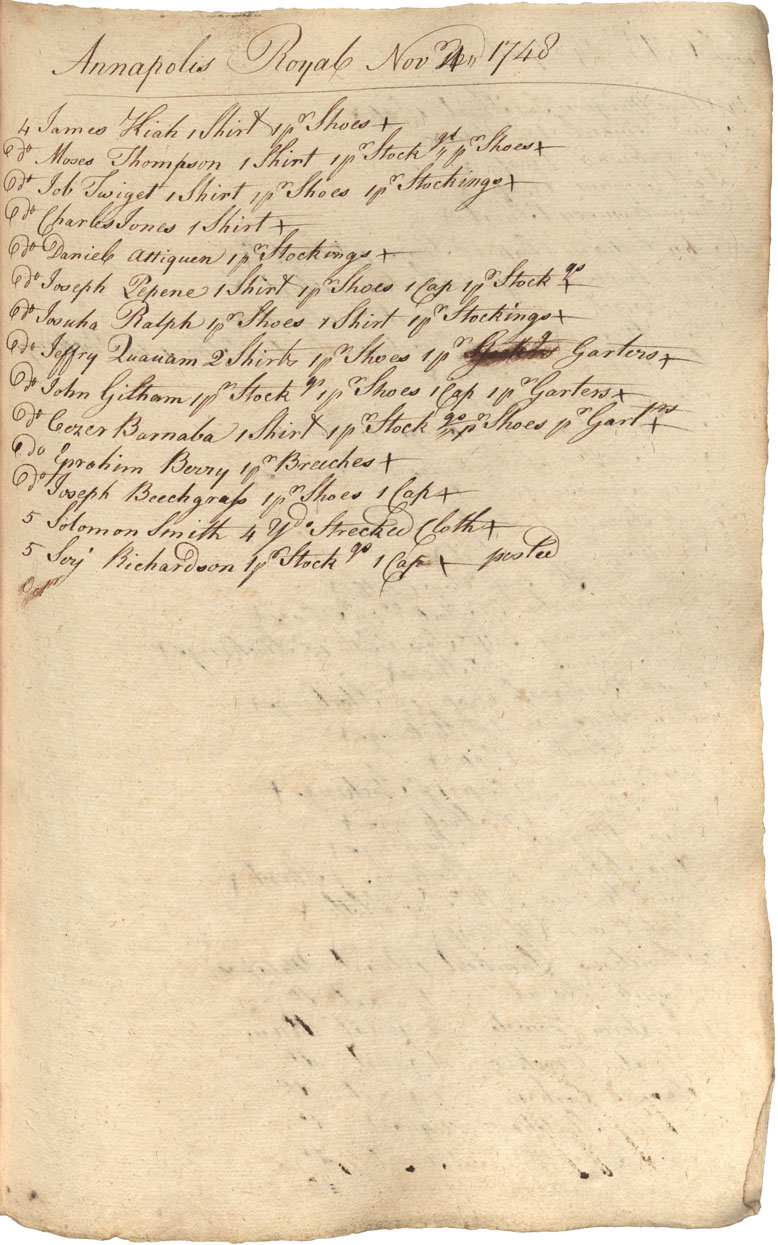 Annapolis Royal Novr 4 1748
4 James Kiah 1 Shirt 1 pr Shoes +
Do Moses Thompson 1 Shirt 1 pr Stockgs 1 pr Shoes +
Do Job Twiget 1 Shirt 1 pr Shoes 1 pr Stockings +
Do Charles Jones 1 Shirt +
Do Daniel Attiquen 1 pr Stockings +
Do Joseph Pepene 1 Shirt 1 pr Shoes 1 Cap 1 pr Stockgs +
Do Josuha Ralph 1 pr Shoes 1 Shirt 1 pr Stockings +
Do Jeffry Quauam 2 Shirts 1 pr Shoes 1 pr Garters +
Do John Gilham 1 pr Stockgs 1 pr Shoes 1 Cap 1 pr Garters +
Do Cezer Barnaba 1 Shirt 1 pr Stockgs 1 pr Shoes pr Gartrs +
Do Eprahim Berry 1 pr Breeches +
Do Joseph Beechgrass 1 pr Shoes 1 Cap +
5 Solomon Smith 4 Yds Strecked Cloth +
5 Serj Richardson 1 pr Stockgs 1 Cap + posted